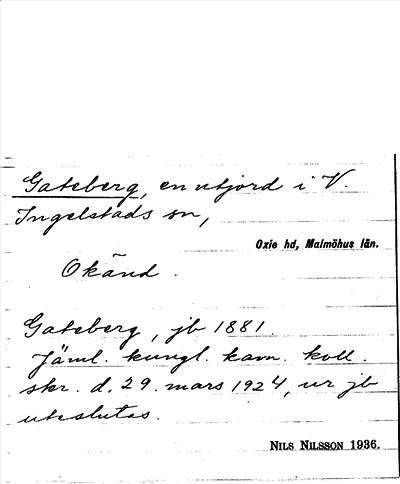 Gateberg, en utjord i V.
Ingelstads sn,
Oxie hd, Malmöhus län.
Okänd.
Gateberg, jb 1881.
Jäml. kungl. kam. koll.
skr. d. 29. mars 1924, ur jb
uteslutas.
NILS NILSSON 1936.